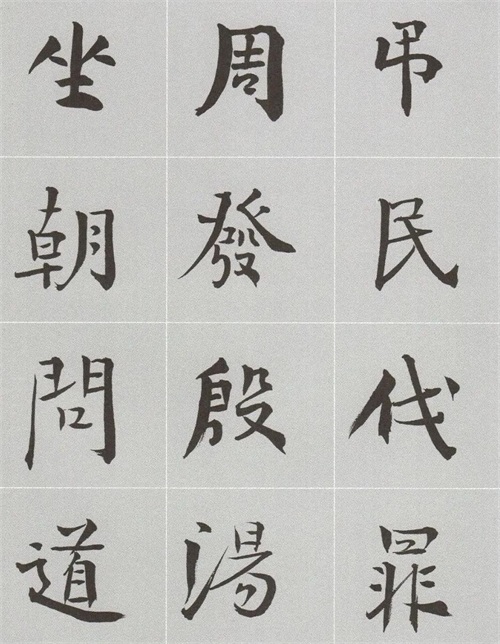 弔民伐罪
周發殷湯
坐朝問道